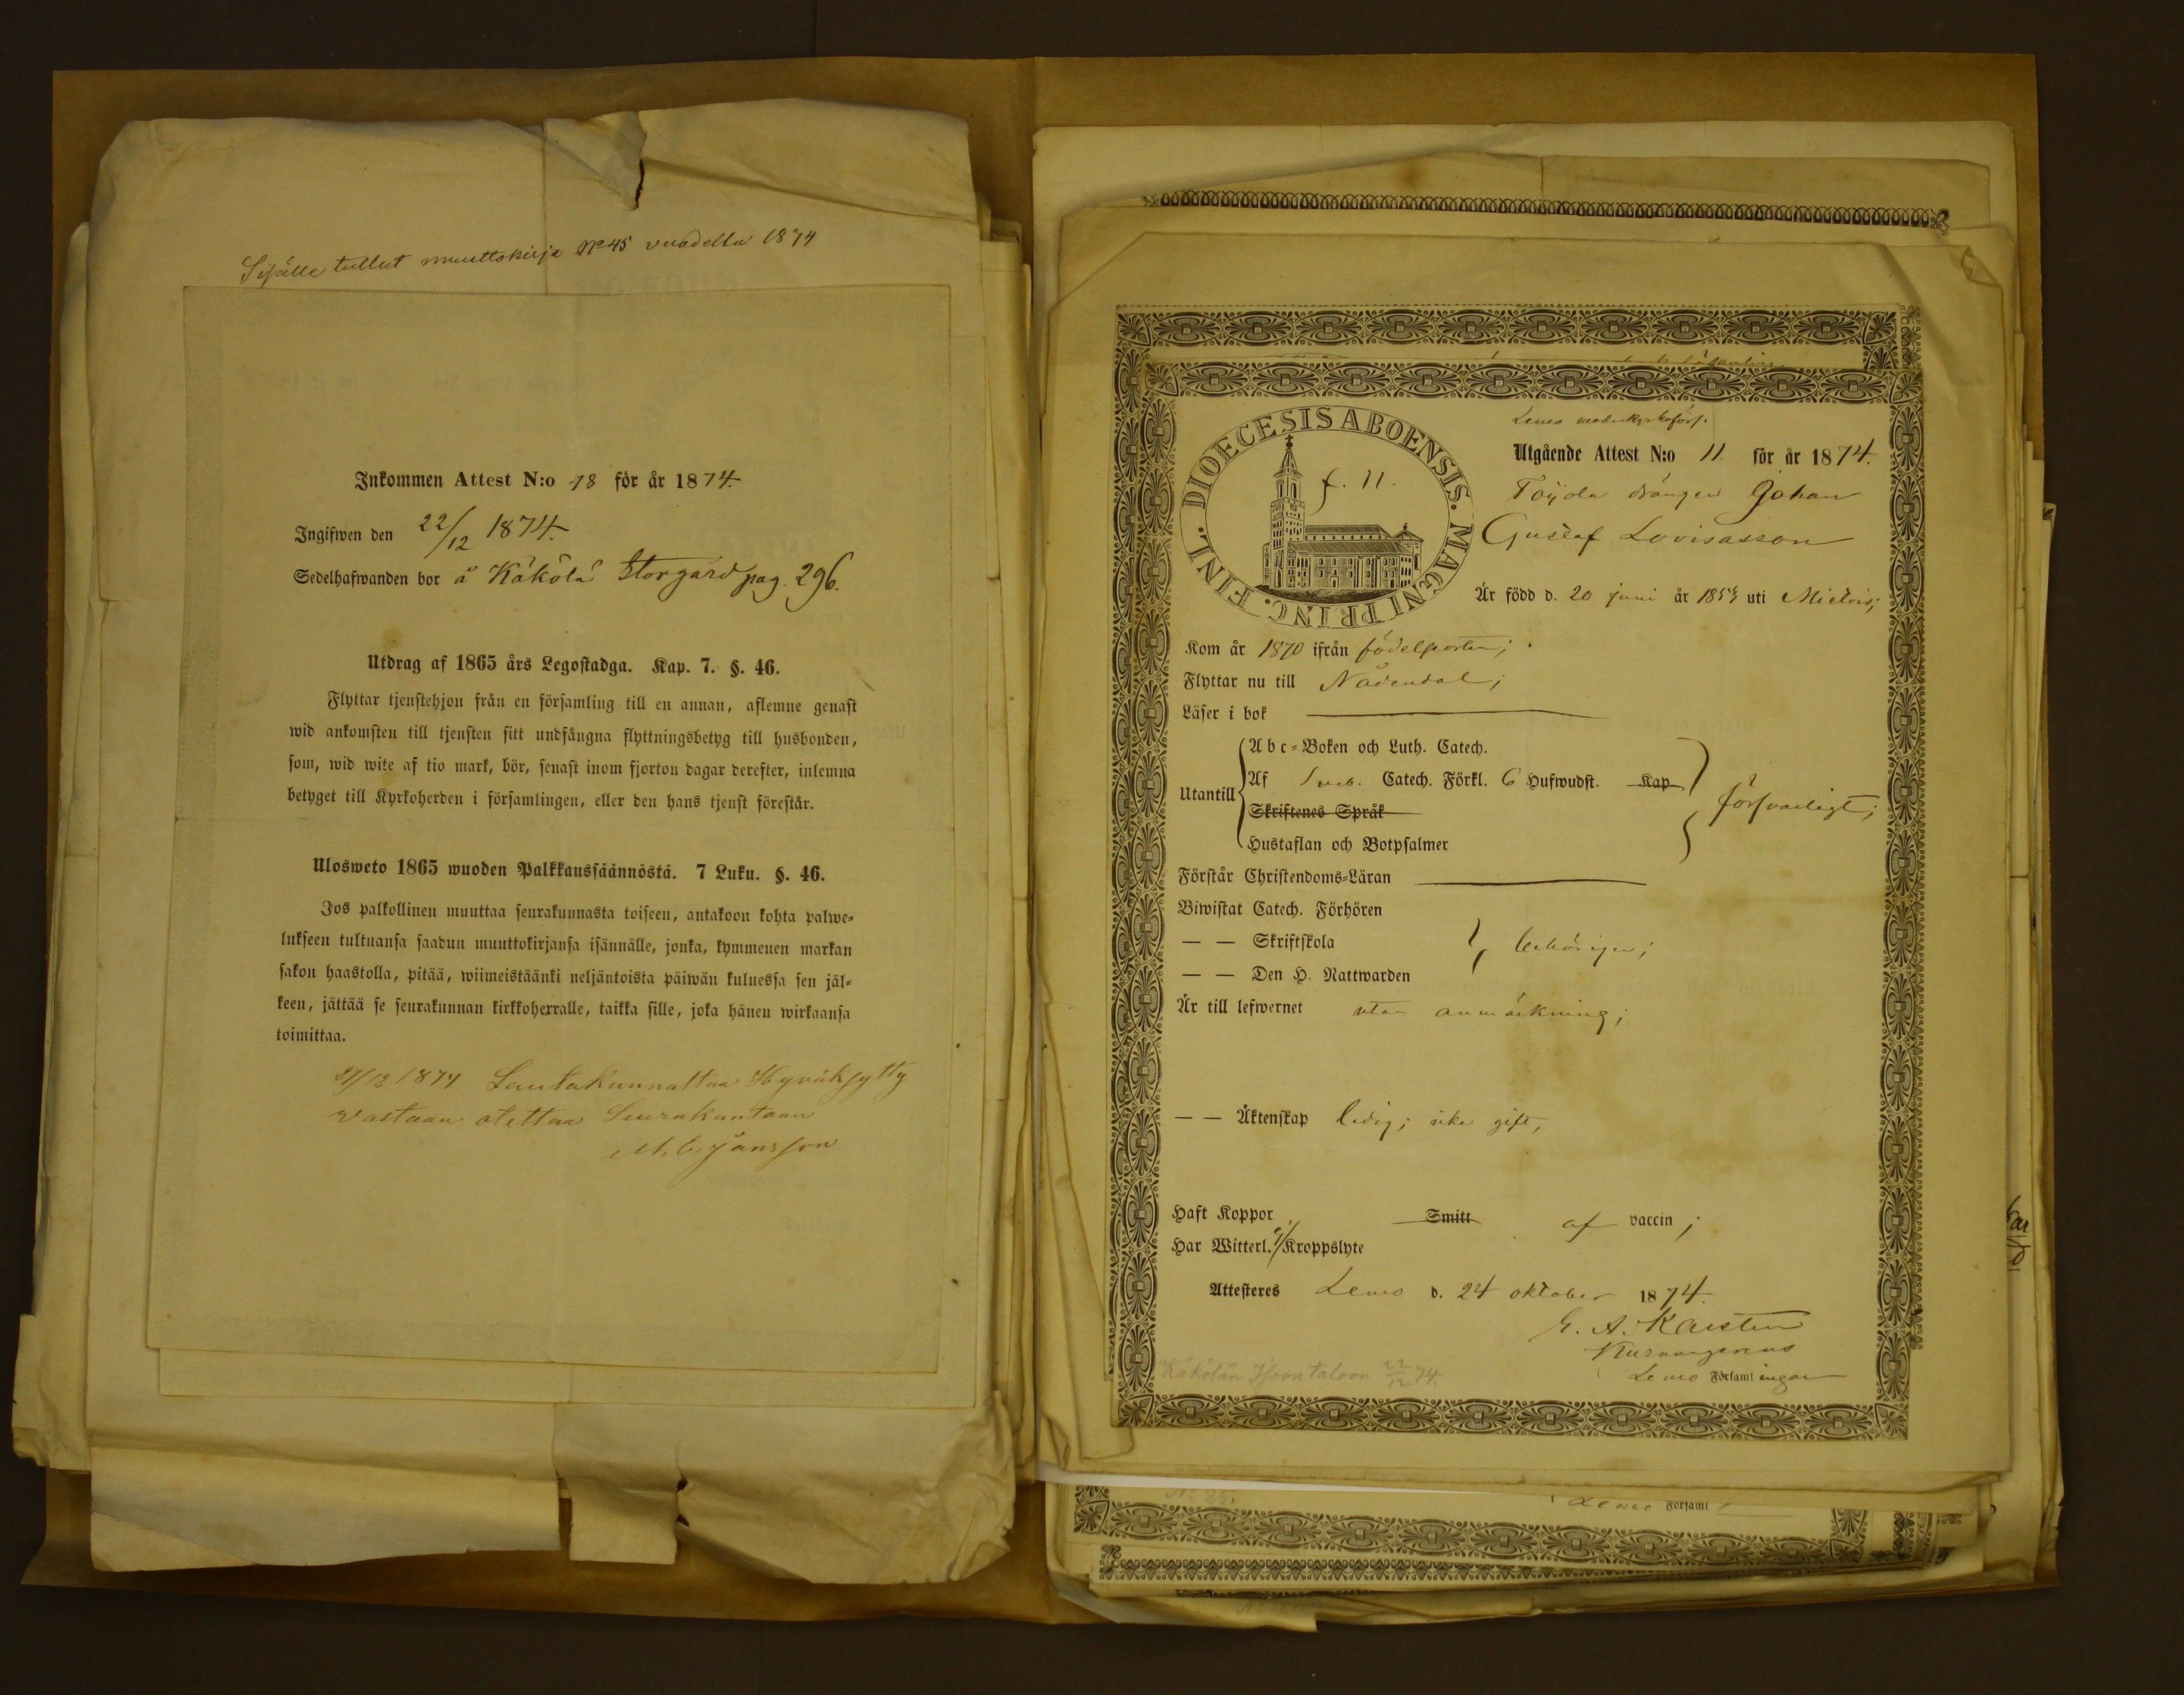 Sisälle tullut muuttokirja No 45 vuodelta 1874
Inkommen Attest N:o 78 för år 1874.
Ingifwen den 22/12 1874.
Sedelhafwanden bor å Käkölä Storgård pag. 296.
Utdrag af 1865 års Legostadga. Kap. 7. §. 46.
Flyttar tjenstehjon från en församling till en annan, aflemne genast
wid ankomsten till tjensten sitt undfångna flyttningsbetyg till husbonden,
som, wid wite af tio mark, bör, senast inom fjorton dagar derefter, inlemna
betyget till Kyrkoherden i församlingen, eller den hans tjenst förestår.
Ulosweto 1865 wuoden Palkkaussäännöstä. 7 Luku. §. 46.
Jos palkollinen muuttaa seurakunnasta toiseen, antakoon kohta palwe-
lukseen tultuansa saadun muuttokirjansa isännälle, jonka, kymmenen markan
sakon haastolla, pitää, wiimeistäänki neljäntoista päiwän kuluessa sen jäl-
keen, jättää se seurakunnan kirkkoherralle, taikka sille, joka hänen wirkaansa
toimittaa.
1874 Lautakunnaltaa Hyväksytty
Vastaan otettaa Seurakuntaan
M. E. Jansson
Lemo moderkyrkoförs.
Utgående Attest N:o 11 för år 1874.
DIOECESIS ABOENSIS. MAGNI PRINC. FINL.
f. 11.
Toijola drängen Johan
Gustaf Lovisasson
Är född d. 20 juni år 1854 uti Mietois;
Kom år 1870 ifrån födelseorten;
Flyttar nu till Nådendal;
Läser i bok
Utantill
Abc-Boken och Luth. Catech.
Af Sveb. Catech. Förkl. 6 Hufwudst. Kap
Skriftenes Språk
Hustaflan och Botpsalmer
försvarligt;
Förstår Christendoms-Läran
Biwistat Catech. Förhören
— — Skriftskola
— — Den H. Nattwarden
behörigen;
Är till lefwernet utan anmärkning;
— — Äktenskap ledig; icke gift,
Haft Koppor Smitt af vaccin;
Har Witterl. Kroppslyte
Attesteres Lemo d. 24 oktober 1874.
G. A. Karsten
Lemo Församlingar
Käkölän Isoon taloon 22/12 74.
Lemo Församl